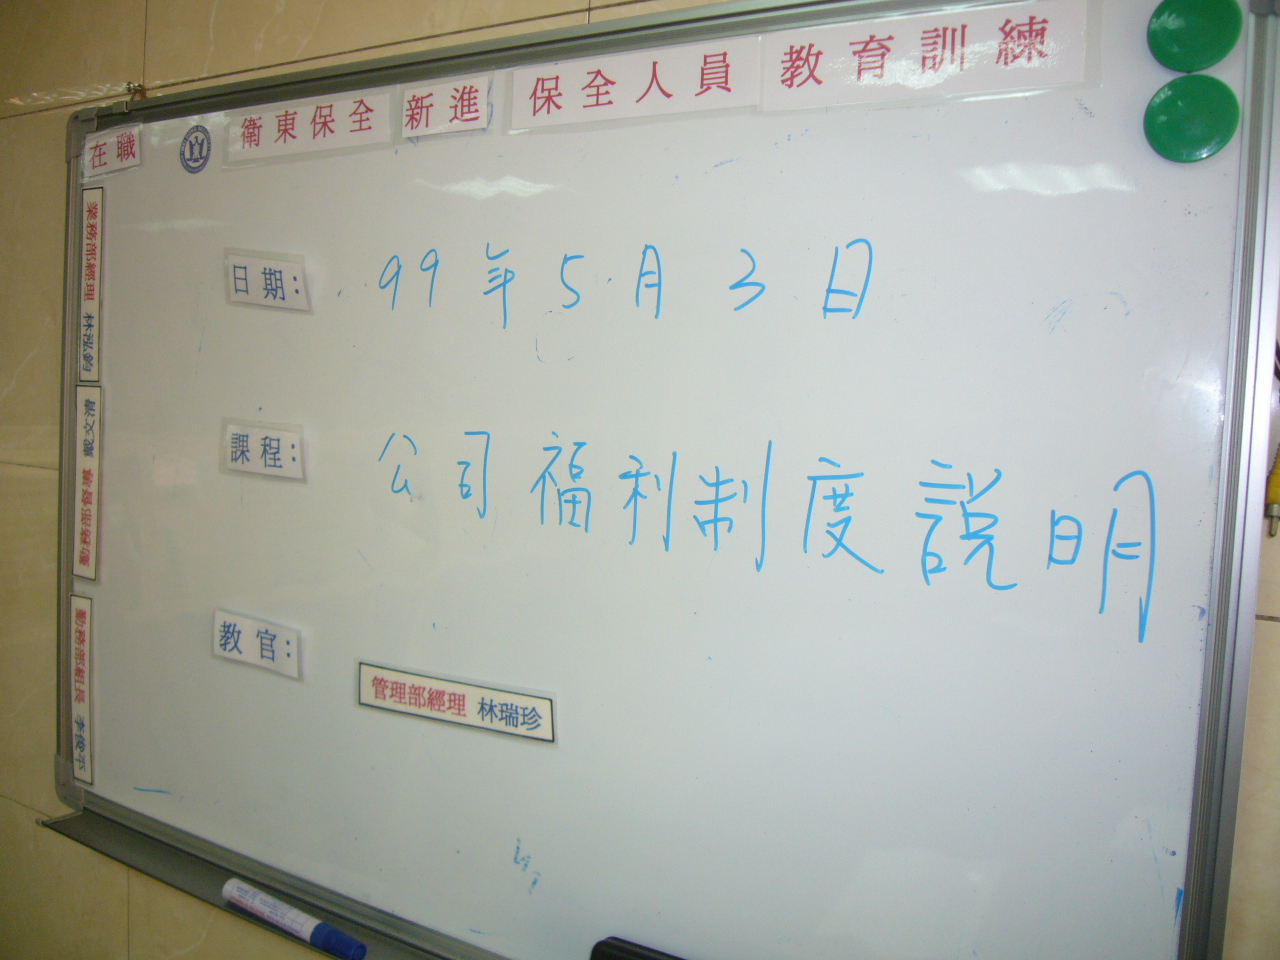 在職 衛東保全 新進 保全人員 教育訓練
日期： 99年5月3日
課程： 公司福利制度說明
教官： 管理部經理 林瑞珍
業務部經理 林泓鈞
勤務部督導 戴文清
勤務部組長 李俊平